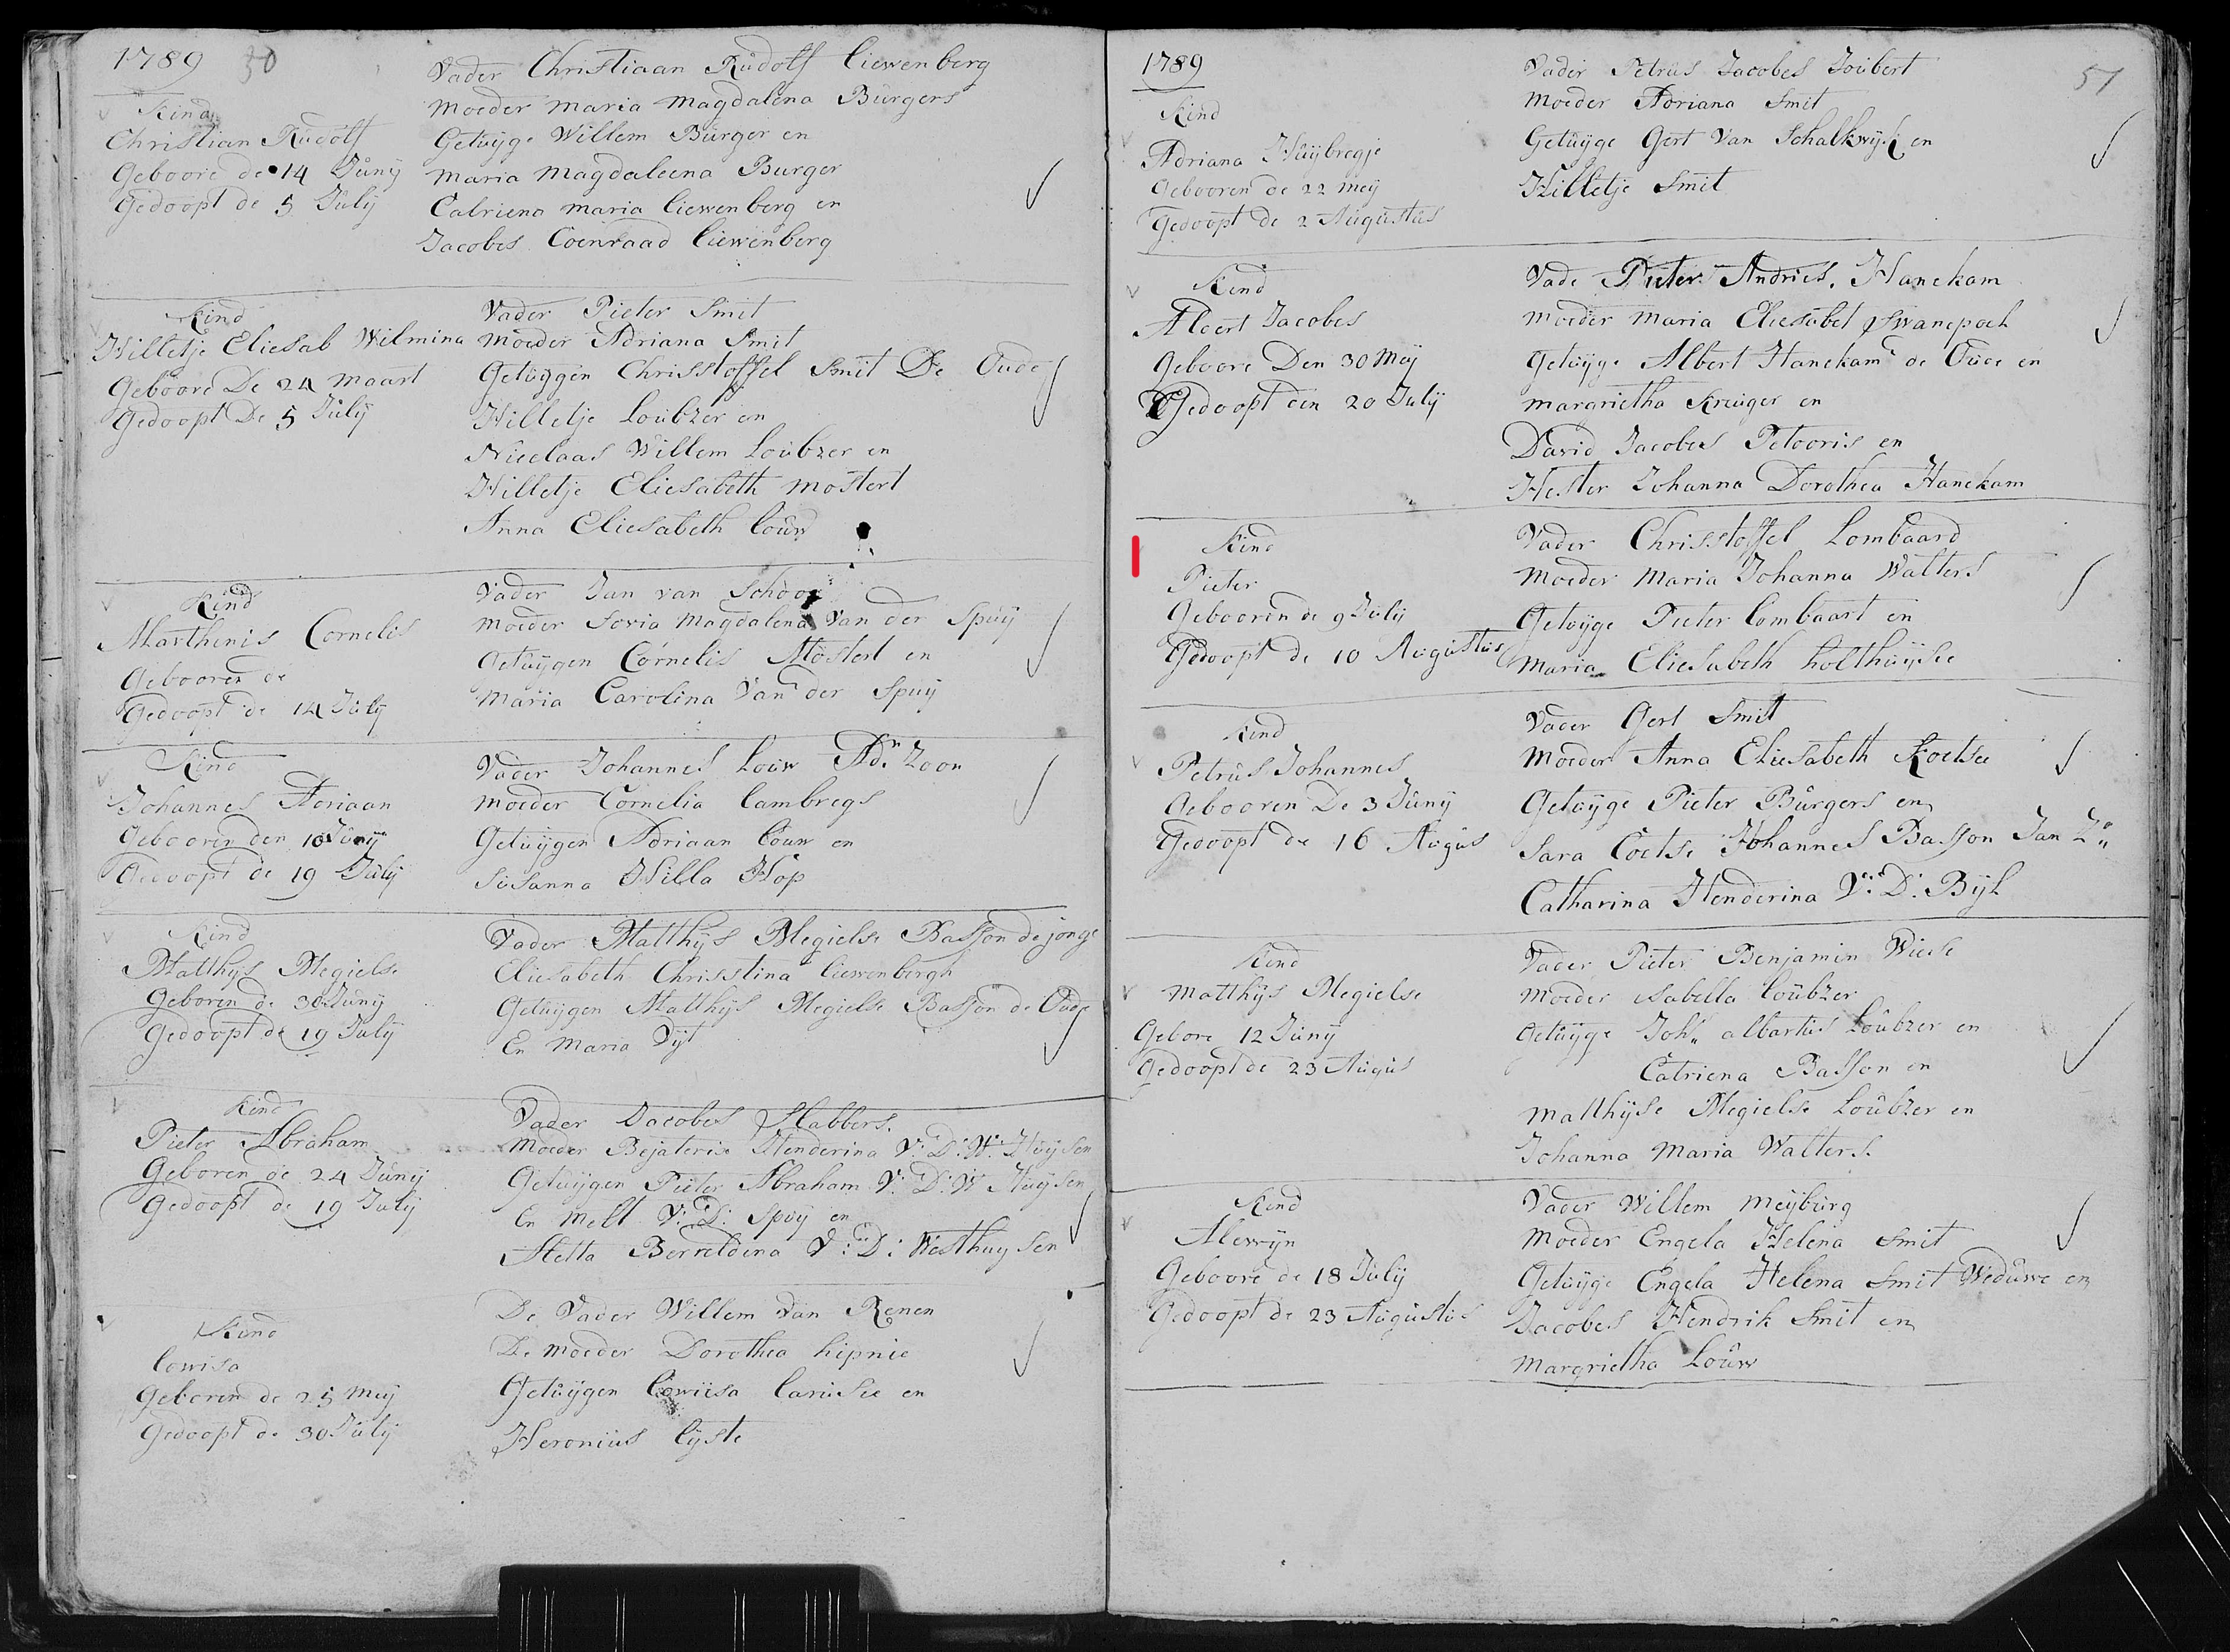 1789 50
Kind
Christian Rudolf
Geboore de 14 Juny
Gedoopt de 5 July
Vader Christiaan Rudolf Liewenberg
Moeder Maria Magdalena Burgers
Getuyge Willem Burger en
Maria Magdaleena Burger
Catriena Maria Liewenberg en
Jacobes Coenraad Liewenberg
Kind
Hilletje Eliesab Wilmina
Geboore De 24 Maart
Gedoopt De 5 July
Vader Pieter Smit
Moeder Adriana Smit
Getuygen Chrisstoffel Smit De Oude
Hilletje Loubzer en
Nicolaas Willem Loubzer en
Hilletje Eliesabeth Mostert
Anna Eliesabeth Louw
Kind
Marthenis Cornelis
Gebooren de
Gedoopt de 14 July
Vader Jan van Schoor
Moeder Sovia Magdalena Van der Spuy
Getuygen Cornelis Mostert en
Maria Carolina Van der Spuy
Kind
Johannes Adriaan
Gebooren den 10 Juny
Gedoopt de 19 July
Vader Johannes Louw Adn. Zoon
Moeder Cornelia Lambregs
Getuygen Adriaan Louw en
Susanna Hilla Hop
Kind
Matthys Megielse
Geboren de 30 Juny
Gedoopt de 19 July
Vader Matthys Megielse Basson de jonge
Eliesabeth Chrisstina Liewenbergh
Getuygen Matthys Megielse Basson de Oude
En Maria Dyt
Kind
Pieter Abraham
Geboren de 24 Juny
Gedoopt de 19 July
Vader Jacobes Slabbers.
Moeder Bejaterise Henderina V: D: W: Huysen
Getuygen Pieter Abraham V: D: W Huysen
En Melt V: D: Spuy en
Aletta Berreldena V: D: Westhuysen
Kind
Lowisa
Geboren de 25 Mey
Gedoopt de 30 July
De Vader Willem Van Renen
De Moeder Dorothea Lipnie
Getuygen Lowiisa Larusee en
Heronius Lyste
1789
51
Kind
Adriana Huybregje
Gebooren de 22 Mey
Gedoopt de 2 Augustus
Vader Petrus Jacobes Joubert
Moeder Adriana Smit
Getuyge Gert Van Schalkwyk en
Hilletje Smit
Kind
Albert Jacobes
Geboore Den 30 Mey
Gedoopt den 20 July
Vade Pieter Andries. Hanekam
Moeder Maria Eliesabet Swanepoel
Getuyge Albert Hanekam de Oude en
Margrietha Kruger en
David Jacobes Petooris en
Hester Johanna Dorothea Hanekam
Kind
Pieter
Gebooren de 9 July
Gedoopt de 10 Augustus
Vader Chrisstoffel Lombaard
Moeder Maria Johanna Walters
Getuyge Pieter Lombaart en
Maria Eliesabeth Holthuyse
Kind
Petrus Johannes
Gebooren De 3 Juny
Gedoopt de 16 Augus
Vader Gert Smit
Moeder Anna Eliesabeth Koetsee
Getuyge Pieter Burgers en
Sara Coetse Johannes Basson Jan Zn
Catharina Henderina V: D: Byl
Kind
Matthys Megielse
Gebore 12 Juny
Gedoopt de 23 Augus
Vader Pieter Benjamin Wiese
Moeder Isabella Loubzer
Getuyge Joh: Albartus Loubzer en
Catriena Basson en
Matthyse Megielse Loubzer en
Johanna Maria Walters.
Kind
Alewyn
Geboore de 18 July
Gedoopt de 23 Augustus
Vader Willem Meyburg
Moeder Engela Helena Smit
Getuyge Engela Helena Smit Weduwe en
Jacobes Hendrik Smit en
Margrietha Louw